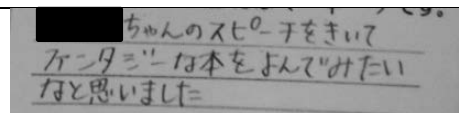 ちゃんのスピーチをきいて
ファンタジーな本をよんでみたい
なと思いました